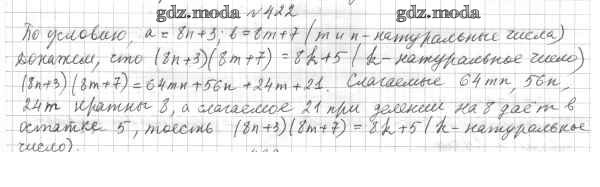 gdz.moda
gdz.moda
№422
По условию, a = 8n+3; b = 8m+7 (m и n - натуральные числа)
Докажем, что (8n+3)(8m+7) = 8k+5 (k - натуральное число)
(8n+3)(8m+7) = 64mn + 56n + 24m + 21. Слагаемые 64mn, 56n,
24m кратны 8, а слагаемое 21 при делении на 8 даёт в
остатке 5, тоесть (8n+3)(8m+7) = 8k+5 (k - натуральное
число).